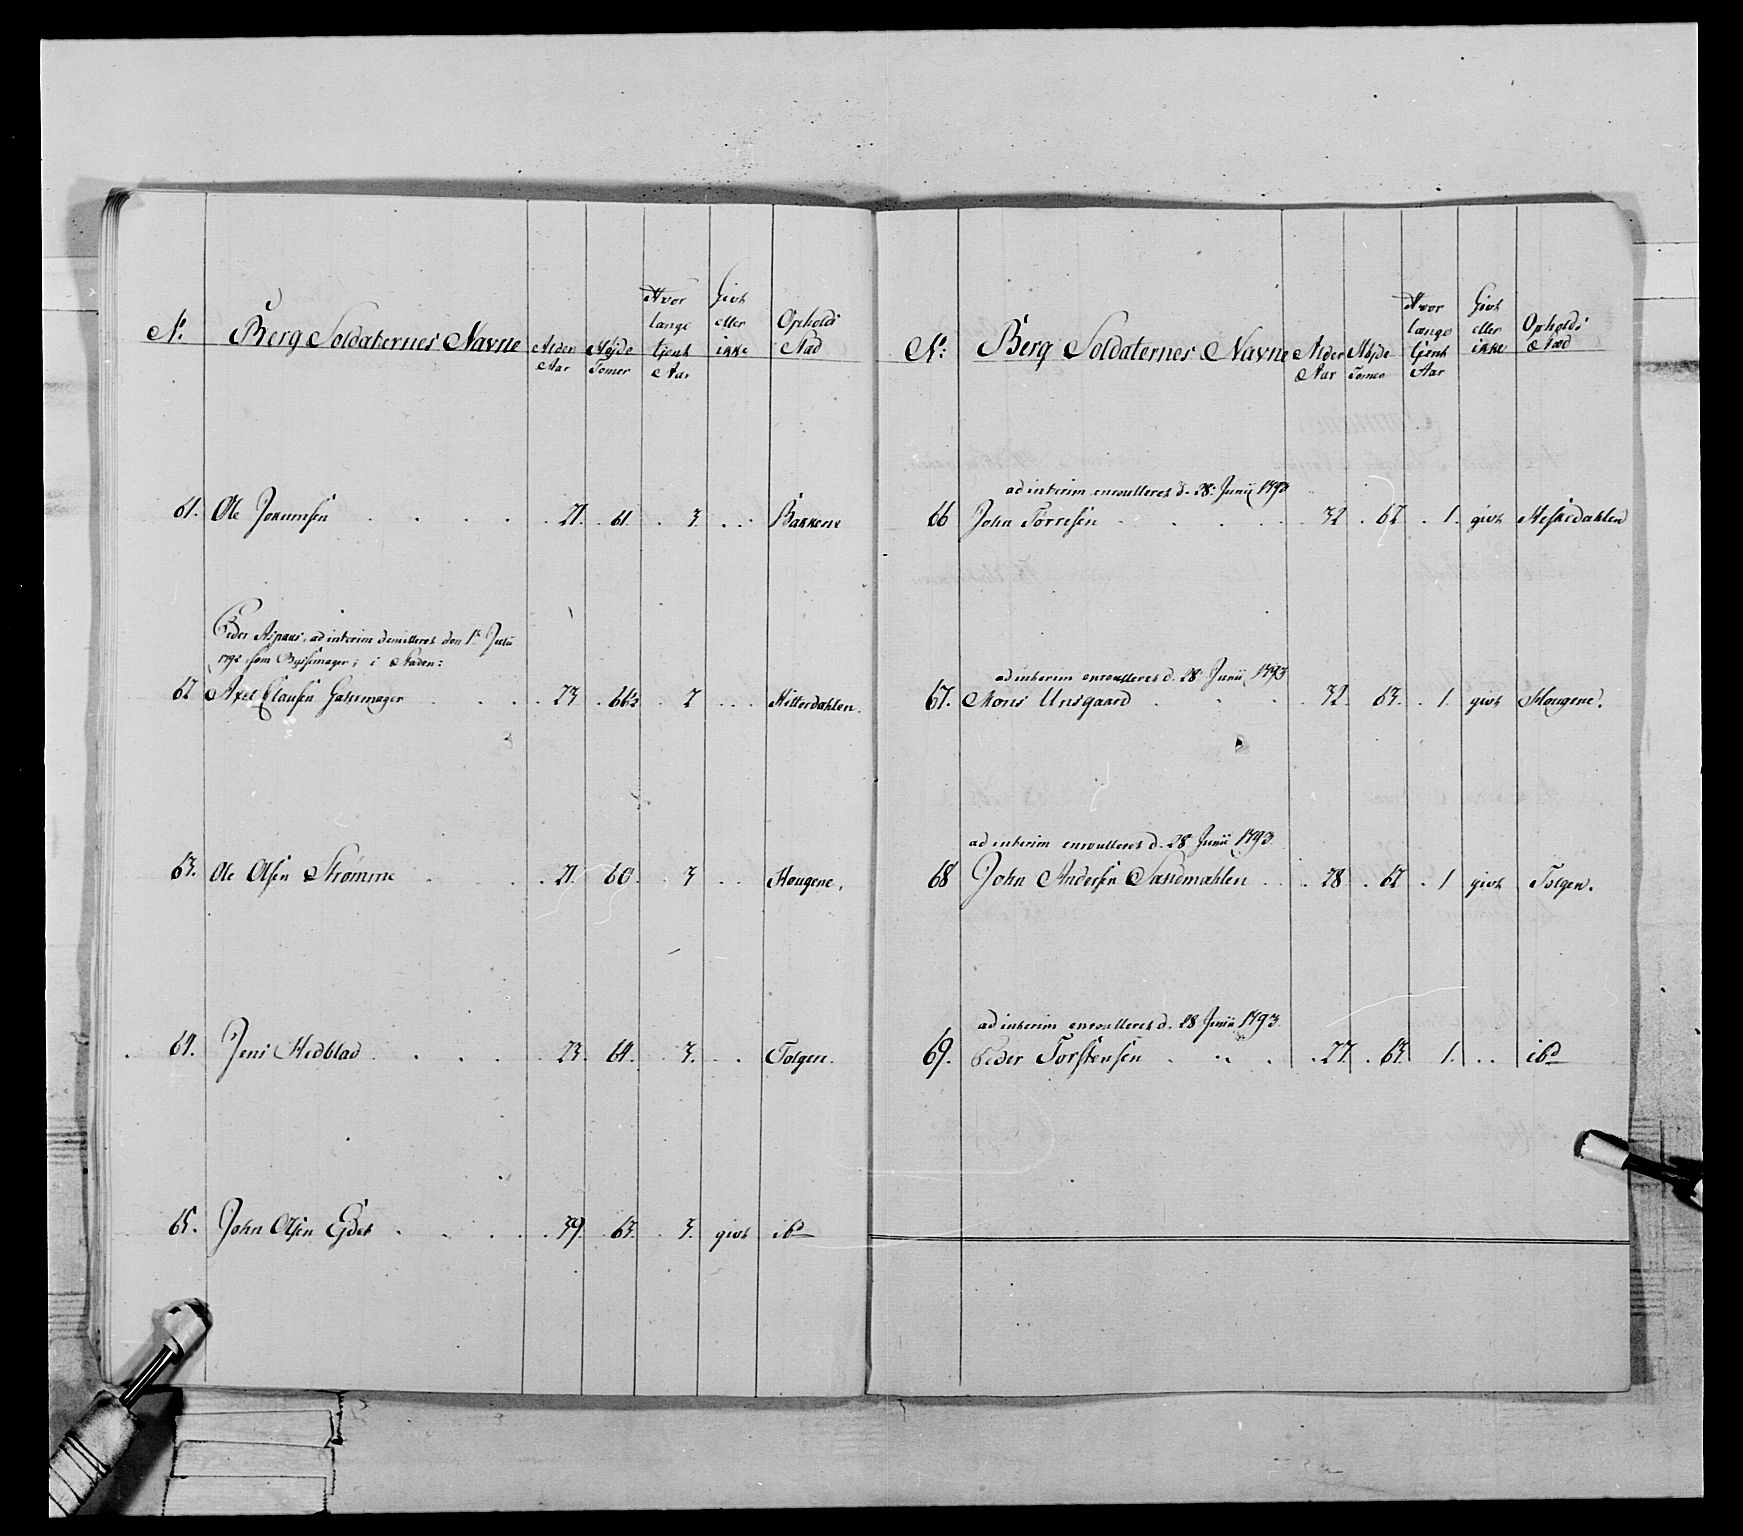 No. Berg Soldaternes Navne Alder Aar Høyde Tomer Hvor længe tjent Aar Givt eller ikke Opholds Stad
61. Ole Jokumsen . . . . 21. 61. 3. . . Bakkene
Peder Aspaas, ad interim demitteret den 1te Julii
1792 som Bøssemager i Staden:
62 Axel Clausen Gassmager . . . 23. 66½ 2 . . . Hitterdahlen.
63. Ole Olsen Strømme . . . 21. 60. 3 . . Hougene.
64. Jens Hedblad . . . . 23. 64. 3. . . Tolgen.
65. John Olsen Eidet . . . . 39. 63. 3. givt ibd
No: Berg Soldaternes Navne Alder Aar Høyde Tomer Hvor længe tjent Aar Givt eller ikke Opholds Stæd
ad interim enroulleret d. 28. Junii 1793
66 John Torresen . . . . 32. 62. 1. givt Heskedahlen
ad interim enroulleret d. 28 Junii 1793
67. Mons Unsgaard . . . 32. 63. 1. givt Hougene.
ad interim enroulleret d. 28 Junii 1793.
68 John Andersen Sandmæhlen . . 28. 62. 1 givt Tolgen.
ad interim enroulleret d. 28 Junii 1793.
69. Peder Torstensen . . . 27. 63. 1. . . ibd